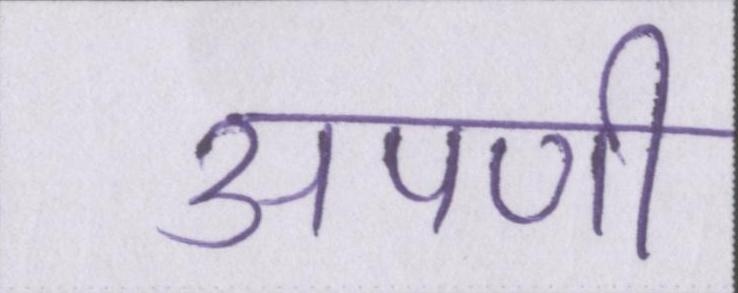 अपणी